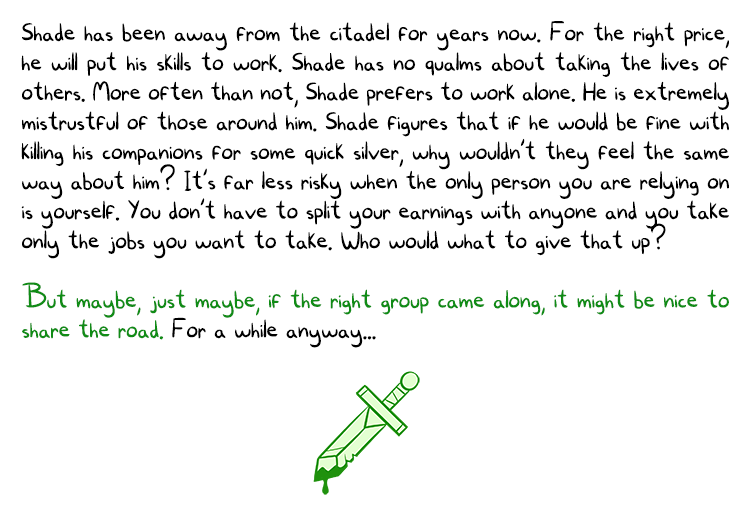 Shade has been away from the citadel for years now. For the right price,
he will put his skills to work. Shade has no qualms about taking the lives of
others. More often than not, Shade prefers to work alone. He is extremely
mistrustful of those around him. Shade figures that if he would be fine with
killing his companions for some quick silver, why wouldn't they feel the same
way about him? It's far less risky when the only person you are relying on
is yourself. You don't have to split your earnings with anyone and you take
only the jobs you want to take. Who would what to give that up?
But maybe, just maybe, if the right group came along, it might be nice to
share the road. For a while anyway...